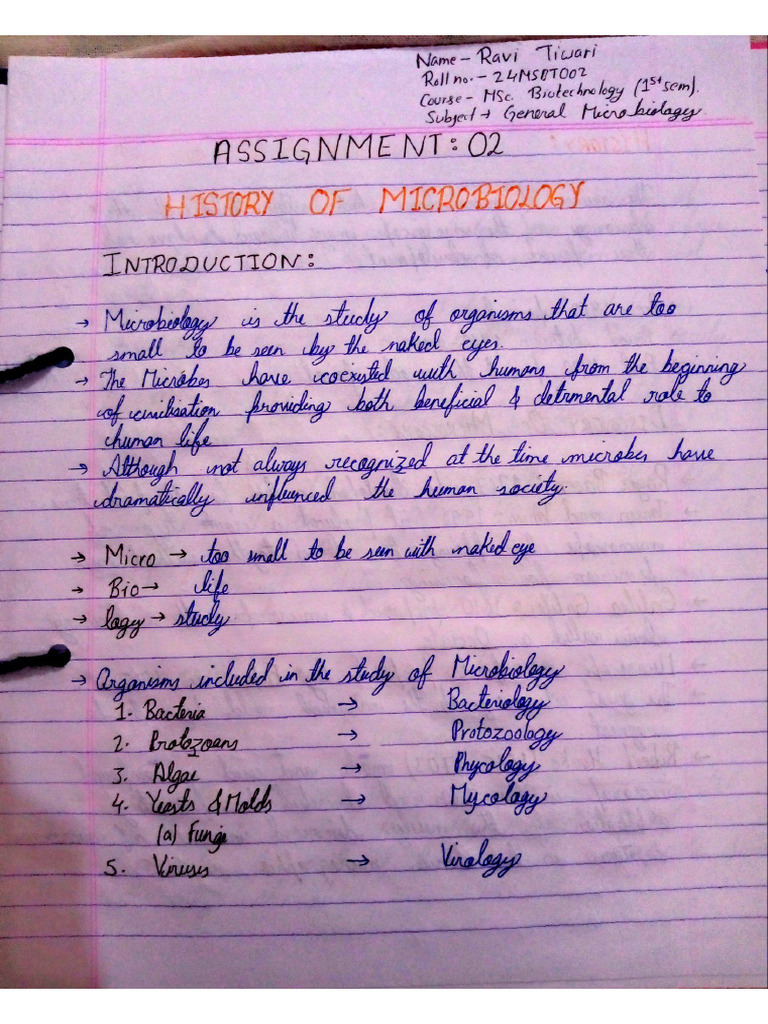 Name - Ravi Tiwari
Roll no. - 24MSBT002
Course - MSc. Biotechnology (1st sem).
Subject → General Microbiology
ASSIGNMENT: 02
HISTORY OF MICROBIOLOGY
INTRODUCTION:
→ Microbiology is the study of organisms that are too
small to be seen by the naked eyes.
→ The Microbes have coexisted with humans from the beginning
of civilisation providing both beneficial & detrmental role to
human life
→ Although not always recognized at the time microbes have
dramatically influenced the human society.
→ Micro → too small to be seen with naked eye
→ Bio → life
→ logy → study
→ Organisms included in the study of Microbiology
1. Bacteria → Bacteriology
2. Protozoans → Protozoology
3. Algae → Phycology
4. Yeasts & Molds → Mycology
(a) Fungi
5. Viruses → Virology